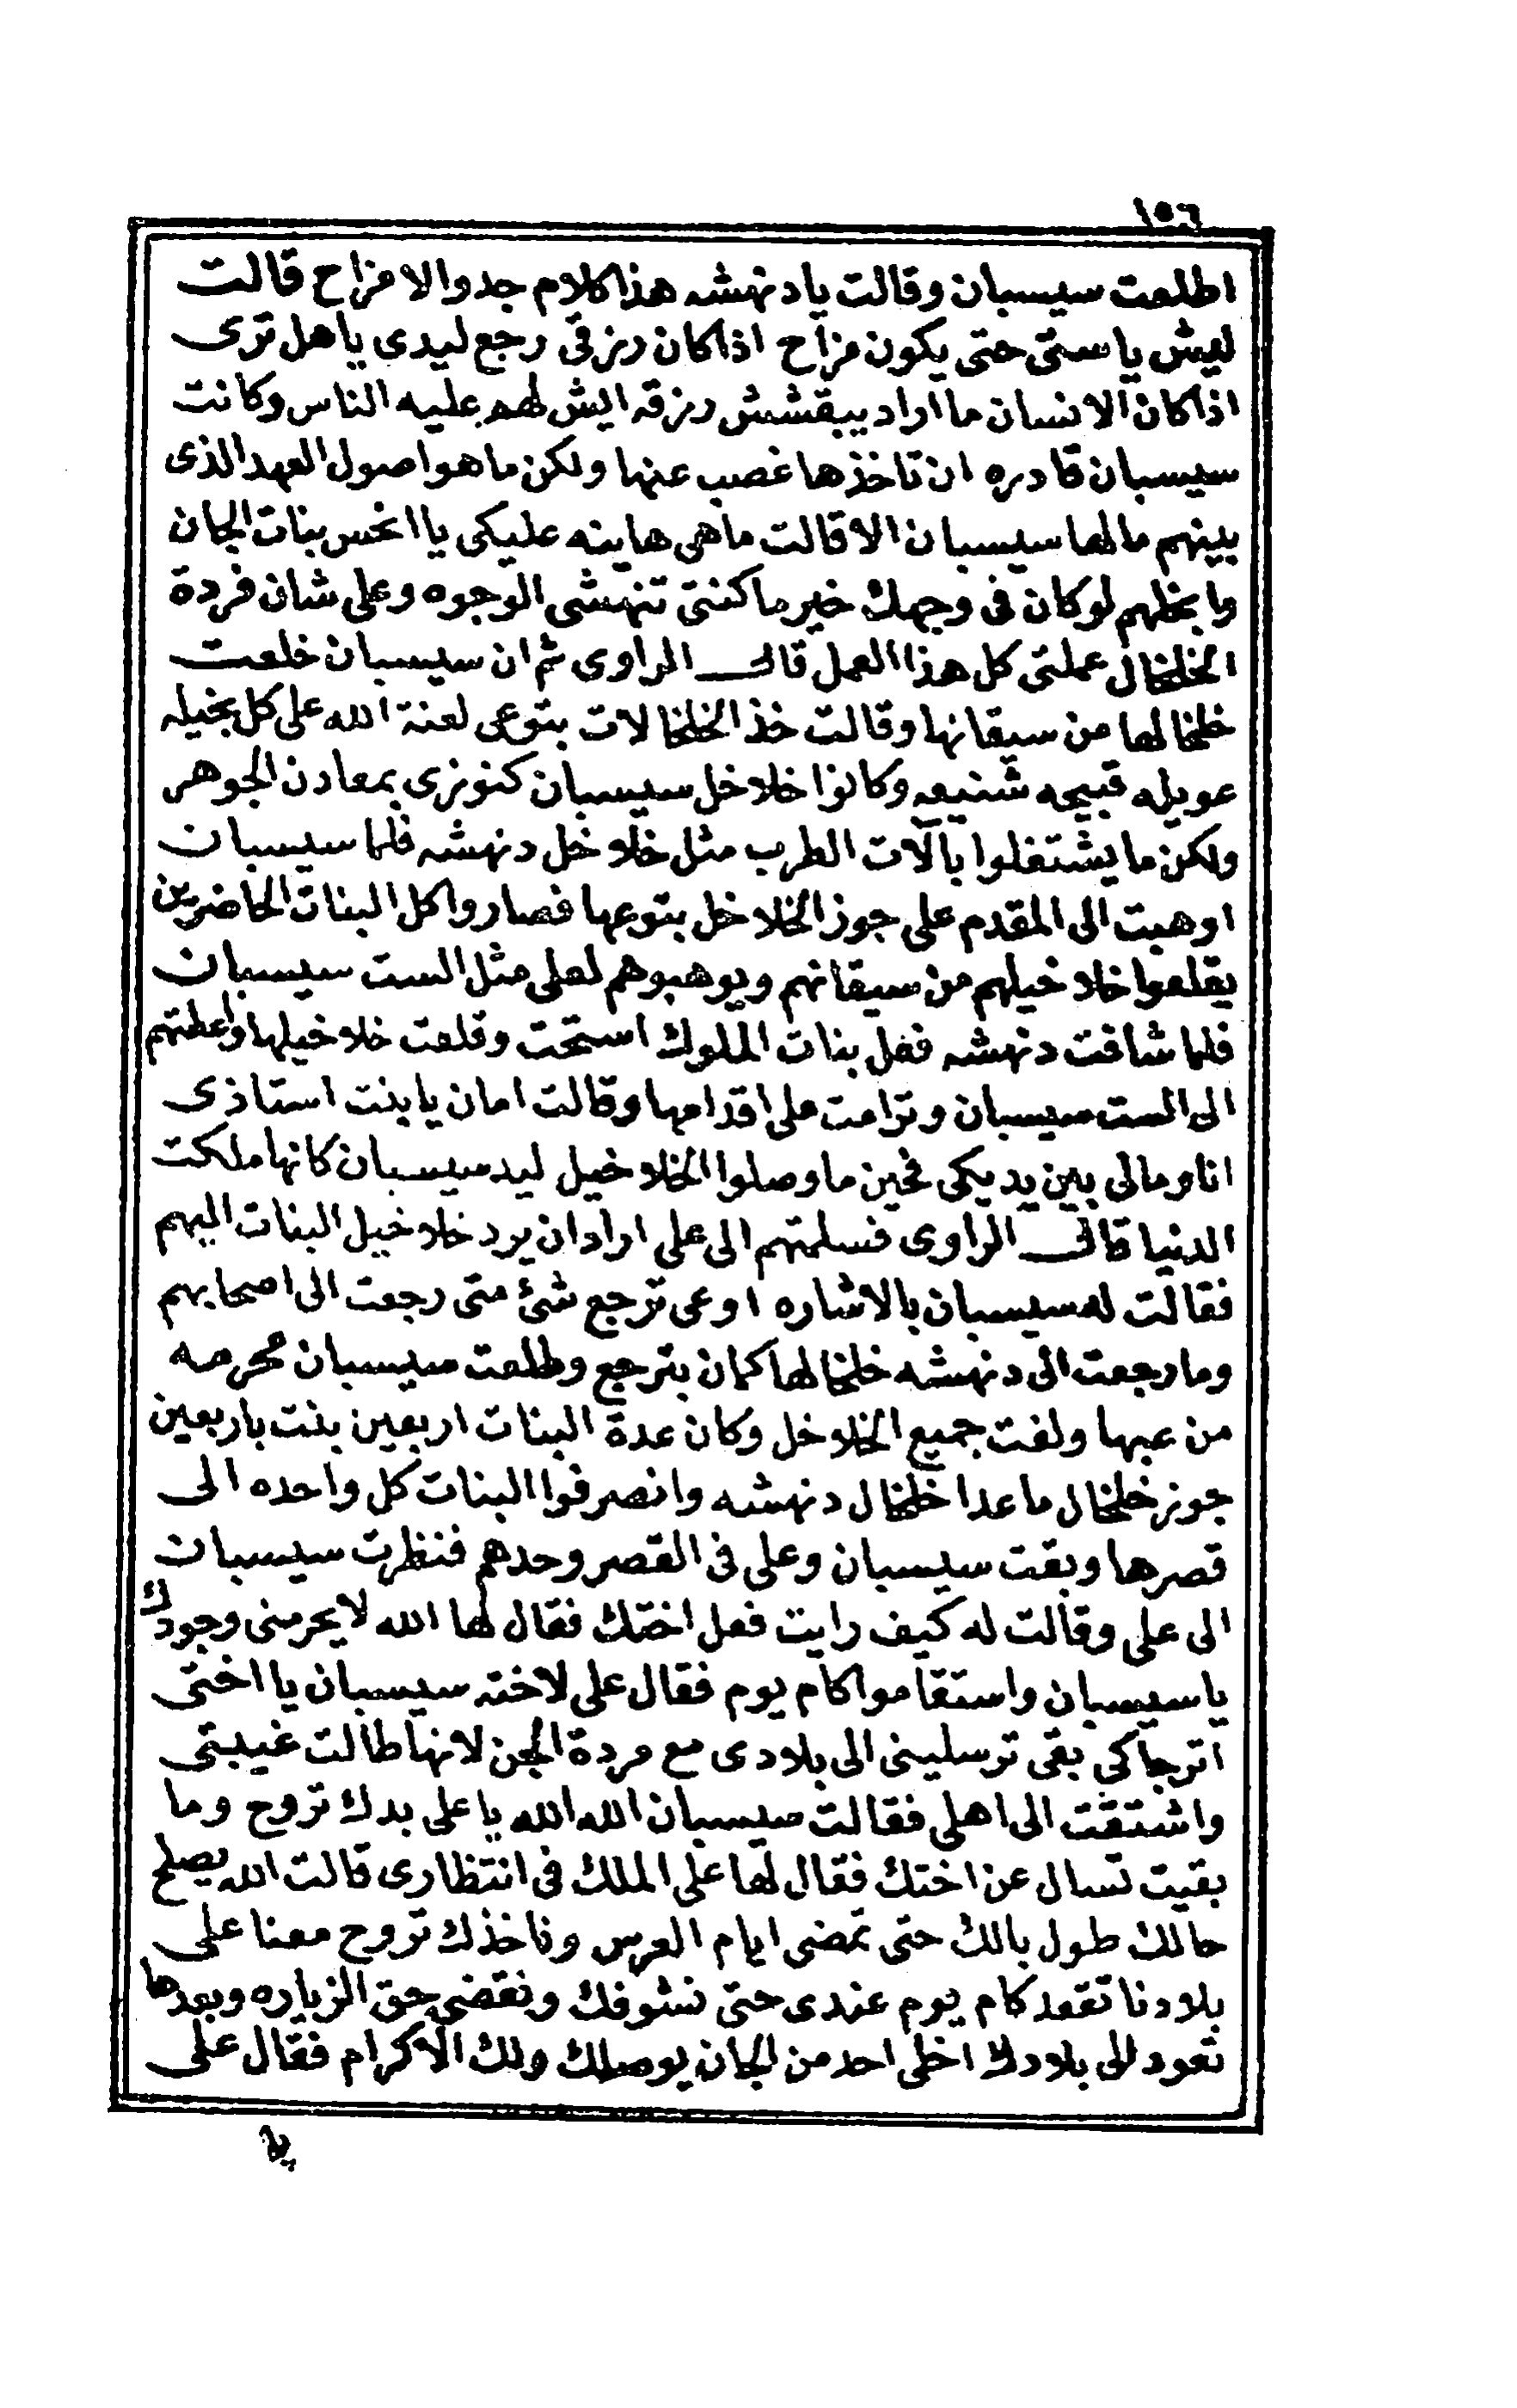 ١٥٦
اطلعت سيسبان وقالت يا دنهشه هذا كلام جد والا مزاح قالت
ليش يا ستى حتى يكون مزاح اذا كان رزقى رجع ليدى يا هل ترى
اذا كان الانسان ما اراد يبقشش رزقه ايش لهم عليه الناس وكانت
سيسبان قادره ان تاخذها غصب عنها ولكن ما هو اصول العهد الذى
بينهم مالها سيسبان الا قالت ما هى هاينه عليكى يا انحس بنات الجان
وابخلهم لو كان فى وجهك خير ما كنتى تنهشى الوجوه وعلى شان فردة
الخلخال عملتى كل هذا العمل قال الراوى ثم ان سيسبان خلعت
خلخالها من سيقانها وقالت خذ الخلخالات بتوعى لعنة الله على كل بخيله
عويله قبيحه شنيعه وكانوا خلاخل سيسبان كنوزى بمعادن الجوهر
ولكن ما يشتغلوا بالآت الطرب مثل خلاخل دنهشه فلما سيسبان
اوهبت الى المقدم على جوز الخلاخل بتوعها فصاروا كل البنات الحاضرين
يقلعوا خلاخيلهم من سيقانهم ويوهبوهم لعلى مثل الست سيسبان
فلما شافت دنهشه فعل بنات الملوك استحت وقلعت خلاخيلها واعطتهم
الى الست سيسبان وترامت على اقدامها وقالت امان يا بنت استاذى
انا ومالى بين يديكى فحين ما وصلوا الخلاخيل ليد سيسبان كانها ملكت
الدنيا قال الراوى فسلمتهم الى على اراد ان يرد خلاخيل البنات اليهم
فقالت له سيسبان بالاشاره اوعى ترجع شئ متى رجعت الى اصحابهم
وما رجعت الى دنهشه خلخالها كمان بترجع وطلعت سيسبان محرمه
من عبها ولفت جميع الخلاخل وكان عدة البنات اربعين بنت باربعين
جوز خلخال ما عدا خلخال دنهشه وانصرفوا البنات كل واحده الى
قصرها وبقت سيسبان وعلى فى القصر وحدهم فنظرت سيسبان
الى على وقالت له كيف رايت فعل اختك فقال لها الله لا يحرمنى وجودك
يا سيسبان واستقاموا كام يوم فقال على لاخته سيسبان يا اختى
اترجاكى بقى ترسلينى الى بلادى مع مردة الجن لانها طالت غيبتى
واشتقت الى اهلى فقالت سيسبان الله الله يا على بدك تروح وما
بقيت تسال عن اختك فقال لها على الملك فى انتظارى قالت الله يصلح
حالك طول بالك حتى تمضى ايام العرس وناخذك تروح معنا على
بلادنا تقعد كام يوم عندى حتى نشوفك ونقضى حق الزياره وبعدها
تعود الى بلادك اخلى احد من الجان يوصلك ولك الاكرام فقال على